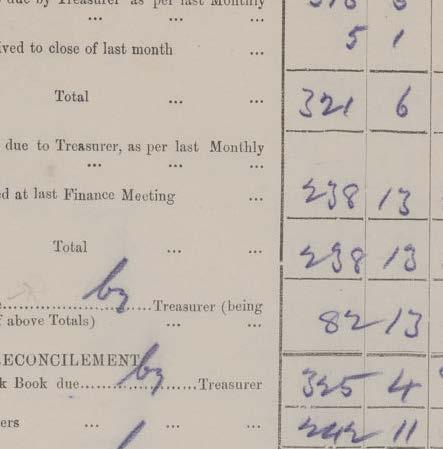 due by Treasurer as per last Monthly
... ... ...
ived to close of last month ... 5 1
Total ... ... 321 6
due to Treasurer, as per last Monthly
... ... ...
ed at last Finance Meeting ... 238 13
Total ... ... 238 13
by Treasurer (being
f above Totals) ... ... 82 13
ECONCILEMENT
k Book due by Treasurer 325 4
ers ... ... ... 242 11